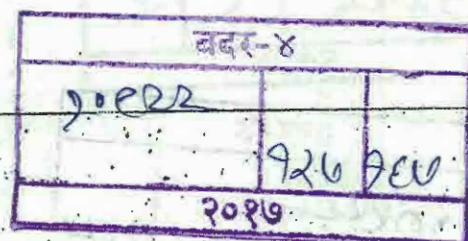 बदर-४
१०९२२
१२७ १६७
२०१७